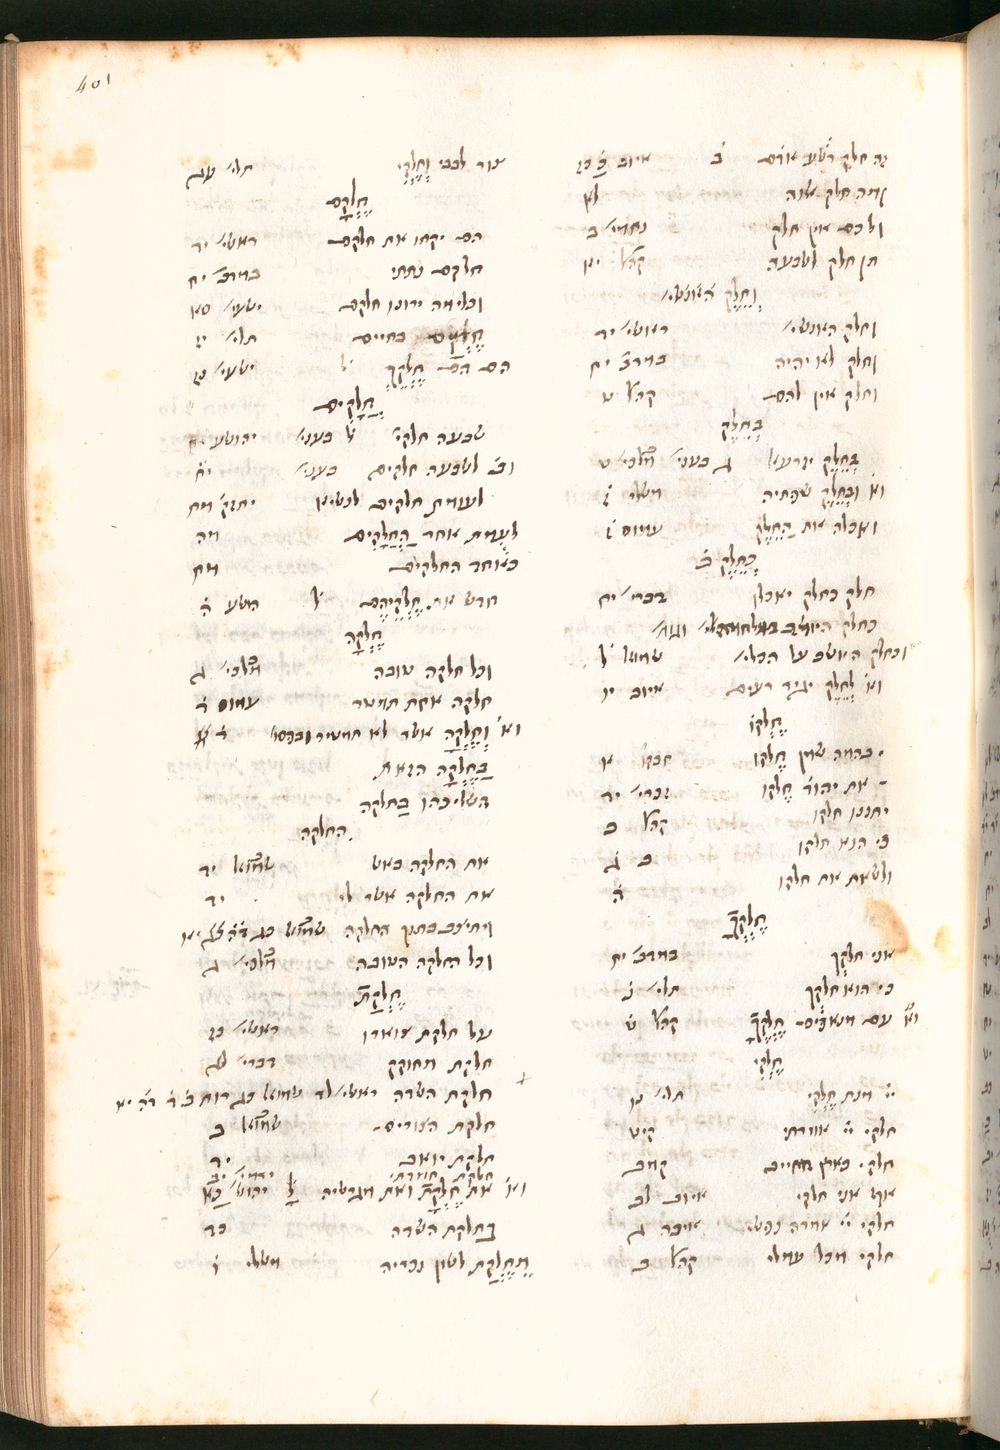 401
זה חלק רשע אדם ב איוב כ כז
ומה חלק אלוה לא
ולכם אין חלק נחמי׳ ב
תן חלק לשבעה קהל׳ יא
וחלק האנשי׳
וחלק האנשי׳ ראשי׳ יד
וחלק לא יהיה במדב׳ יח
וחלק אין להם קהל׳ ט
בחלק
בחלק יזרעאל ג בעני׳ מלכי׳ ט
וא׳ ובחלק שפתיה משלי ז
ואכלה את החלק עמוס ז
כחלק ב
חלק כחלק יאכלו דברי׳ יח
כחלק היורד
וכחלק היושב על הכלי׳ שמואל ל
וא׳ לחלק יגיד רעים איוב יז
חלקו
בהמה שמן חלקו חבקו׳ א
את יהודה חלקו זכרי׳ יד
יתננו חלקו קהל׳ ב
כי הוא חלקו ב ג
ולשאת את חלקו ה
חלקך
אני חלקך במדב׳ יח
כי הוא חלקך תלי׳ נ
וא׳ עם מנאפים חלקך קהל׳ ט
חלקי
יי׳ מנת חלקי תלי׳ יו
חלקי יי׳ אמרתי קיט
חלקי בארץ החיים קמב
אענה אני חלקי איוב לב
חלקי יי׳ אמרה נפשי איכה ג
חלקי מכל עמלי קהל׳ ב
צור לבבי וחלקי תלי׳ עג
חלקם
הם יקחו את חלקם ראשי׳ יד
חלקם נתתי במדב׳ יח
וכלימה ירונו חלקם ישעי׳ סא
חלקם בחיים תלי׳ יז
הם הם חלקך ל ישעי׳ נז
חלקים
שבעה חלקי׳ ל בעני׳ יהושע יח
וב׳ לשבעה חלקים בעני׳ יח
לעומת חלקים לנשיא יחזק׳ מח
לעמת אחד החלקים מה
כאחד החלקים מח
חדש את חלקיהם ל הושע ה
חלקה
וכל חלקה טובה מלכי׳ ג
חלקה אחת תמטר עמוס ד
וא׳ וחלקה אשר לא תמטיר ובפסו׳ ד
בחלקה הזאת
השליכהו בחלקה
החלקה
את החלקה באש שמוא׳ יד
את החלקה אשר לי יד
ויתיצב בתוך החלקה שמוא׳ כג דה׳ יא
וכל החלקה הטובה מלכי׳ ג
חלקת
על חלקת צואריו ראשי׳ כז
חלקת מחוקק דברי׳ לג
חלקת השדה ראשי׳ לד שמוא׳ כג רות ב׳ ד׳ דה׳ יא
חלקת הצורים שמוא׳ ב
חלקת יואב יד
חלקת חמדתי ירמי׳ יב
וא׳ את חלקת ואת מגרשיה ל יהוש׳ כא
בחלקת השדה כד
מחלקת לשון נכריה משלי ו